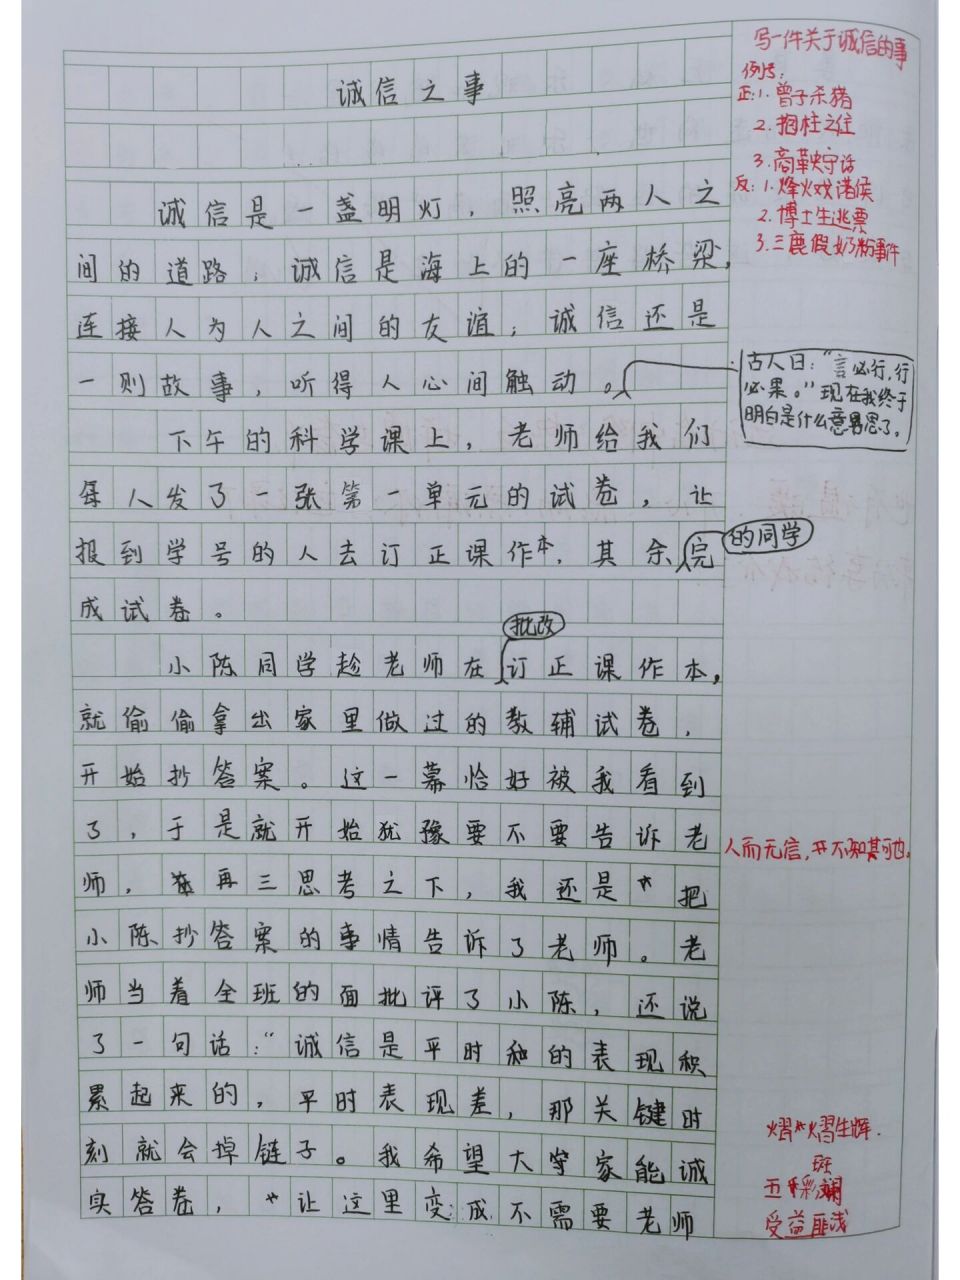 诚信之事
诚信是一盏明灯，照亮两人之
间的道路；诚信是海上的一座桥梁，
连接人为人之间的友谊；诚信还是
一则故事，听得人心间触动。
古人曰：“言必行，行
必果。”现在我终于
明白是什么意思了。
下午的科学课上，老师给我们
每人发了一张第一单元的试卷，让
报到学号的人去订正课作本，其余完
的同学
成试卷。
批改
小陈同学趁老师在订正课作本，
就偷偷拿出家里做过的教辅试卷，
开始抄答案。这一幕恰好被我看到
了，于是就开始犹豫要不要告诉老
师，在再三思考之下，我还是把
小陈抄答案的事情告诉了老师。老
师当着全班的面批评了小陈，还说
了一句话：“诚信是平时和的表现积
累起来的，平时表现差，那关键时
刻就会掉链子。我希望大家能诚
实答卷，让这里变成不需要老师
写一件关于诚信的事
例子：
正：1.曾子杀猪
2.抱柱之信
3.商鞅守诺
反：1.烽火戏诸侯
2.博士生逃票
3.三鹿假奶粉事件
人而无信，不知其可也。
熠熠生辉.
斑
五彩斓
受益匪浅